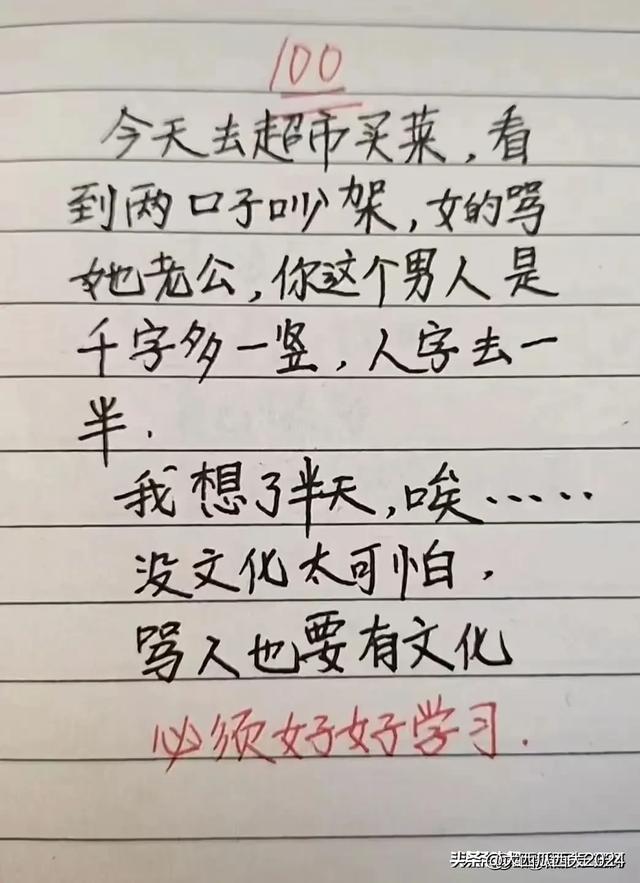 100
今天去超市买菜,看
到两口子吵架,女的骂
她老公,你这个男人是
千字多一竖,人字去一
半.
我想了半天,唉……
没文化太可怕,
骂人也要有文化
必须好好学习.